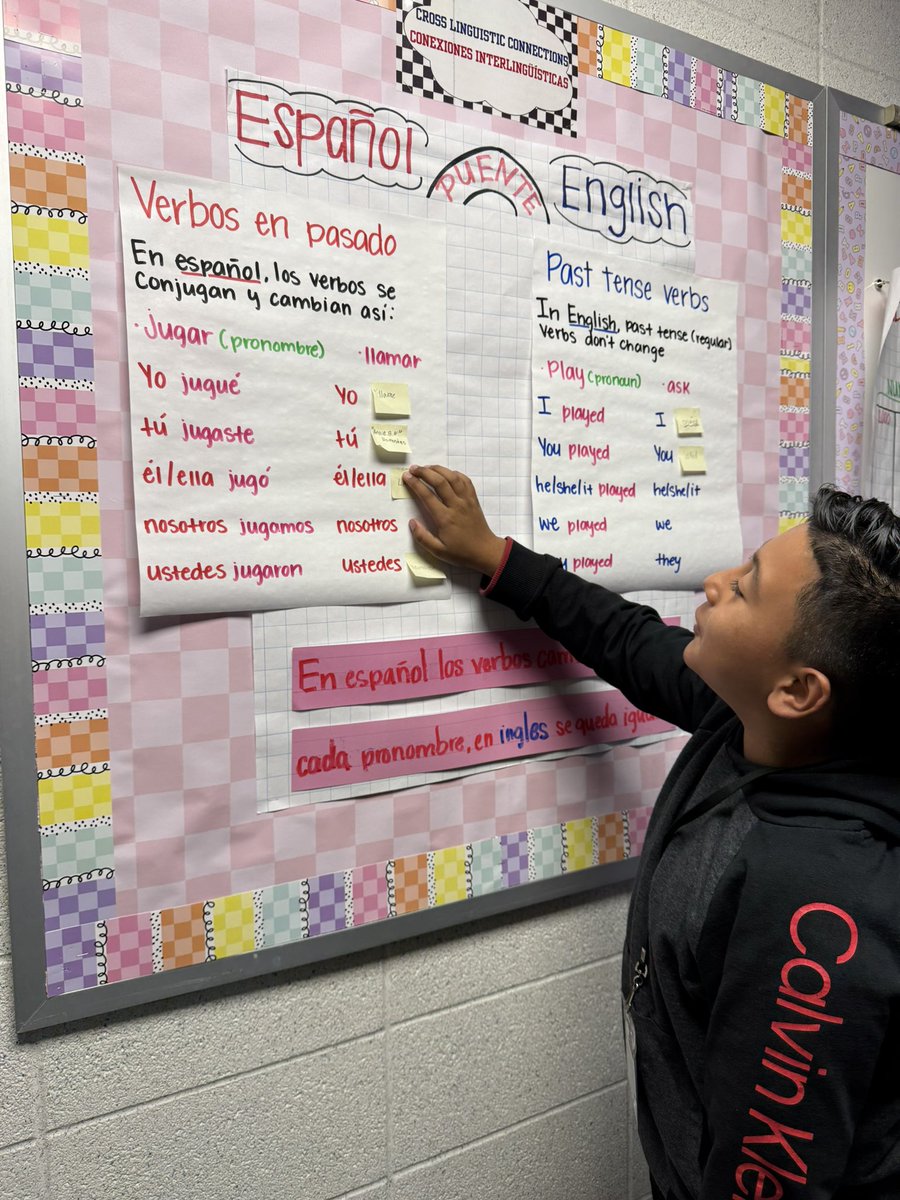 CROSS LINGUISTIC CONNECTIONS
CONEXIONES INTERLINGÜÍSTICAS
Español
PUENTE
English
Verbos en pasado
En español, los verbos se
Conjugan y cambian así:
· Jugar (pronombre)
· llamar
Yo jugué
Yo
tú jugaste
tú
él/ella jugó
él/ella
nosotros jugamos
nosotros
ustedes jugaron
ustedes
Past tense verbs
In English, past tense (regular)
verbs don't change
· Play (pronoun)
· ask
I played
I
You played
You
he/she/it played
he/she/it
we played
we
played
they
En español los verbos
cada pronombre, en ingles se queda
Calvin